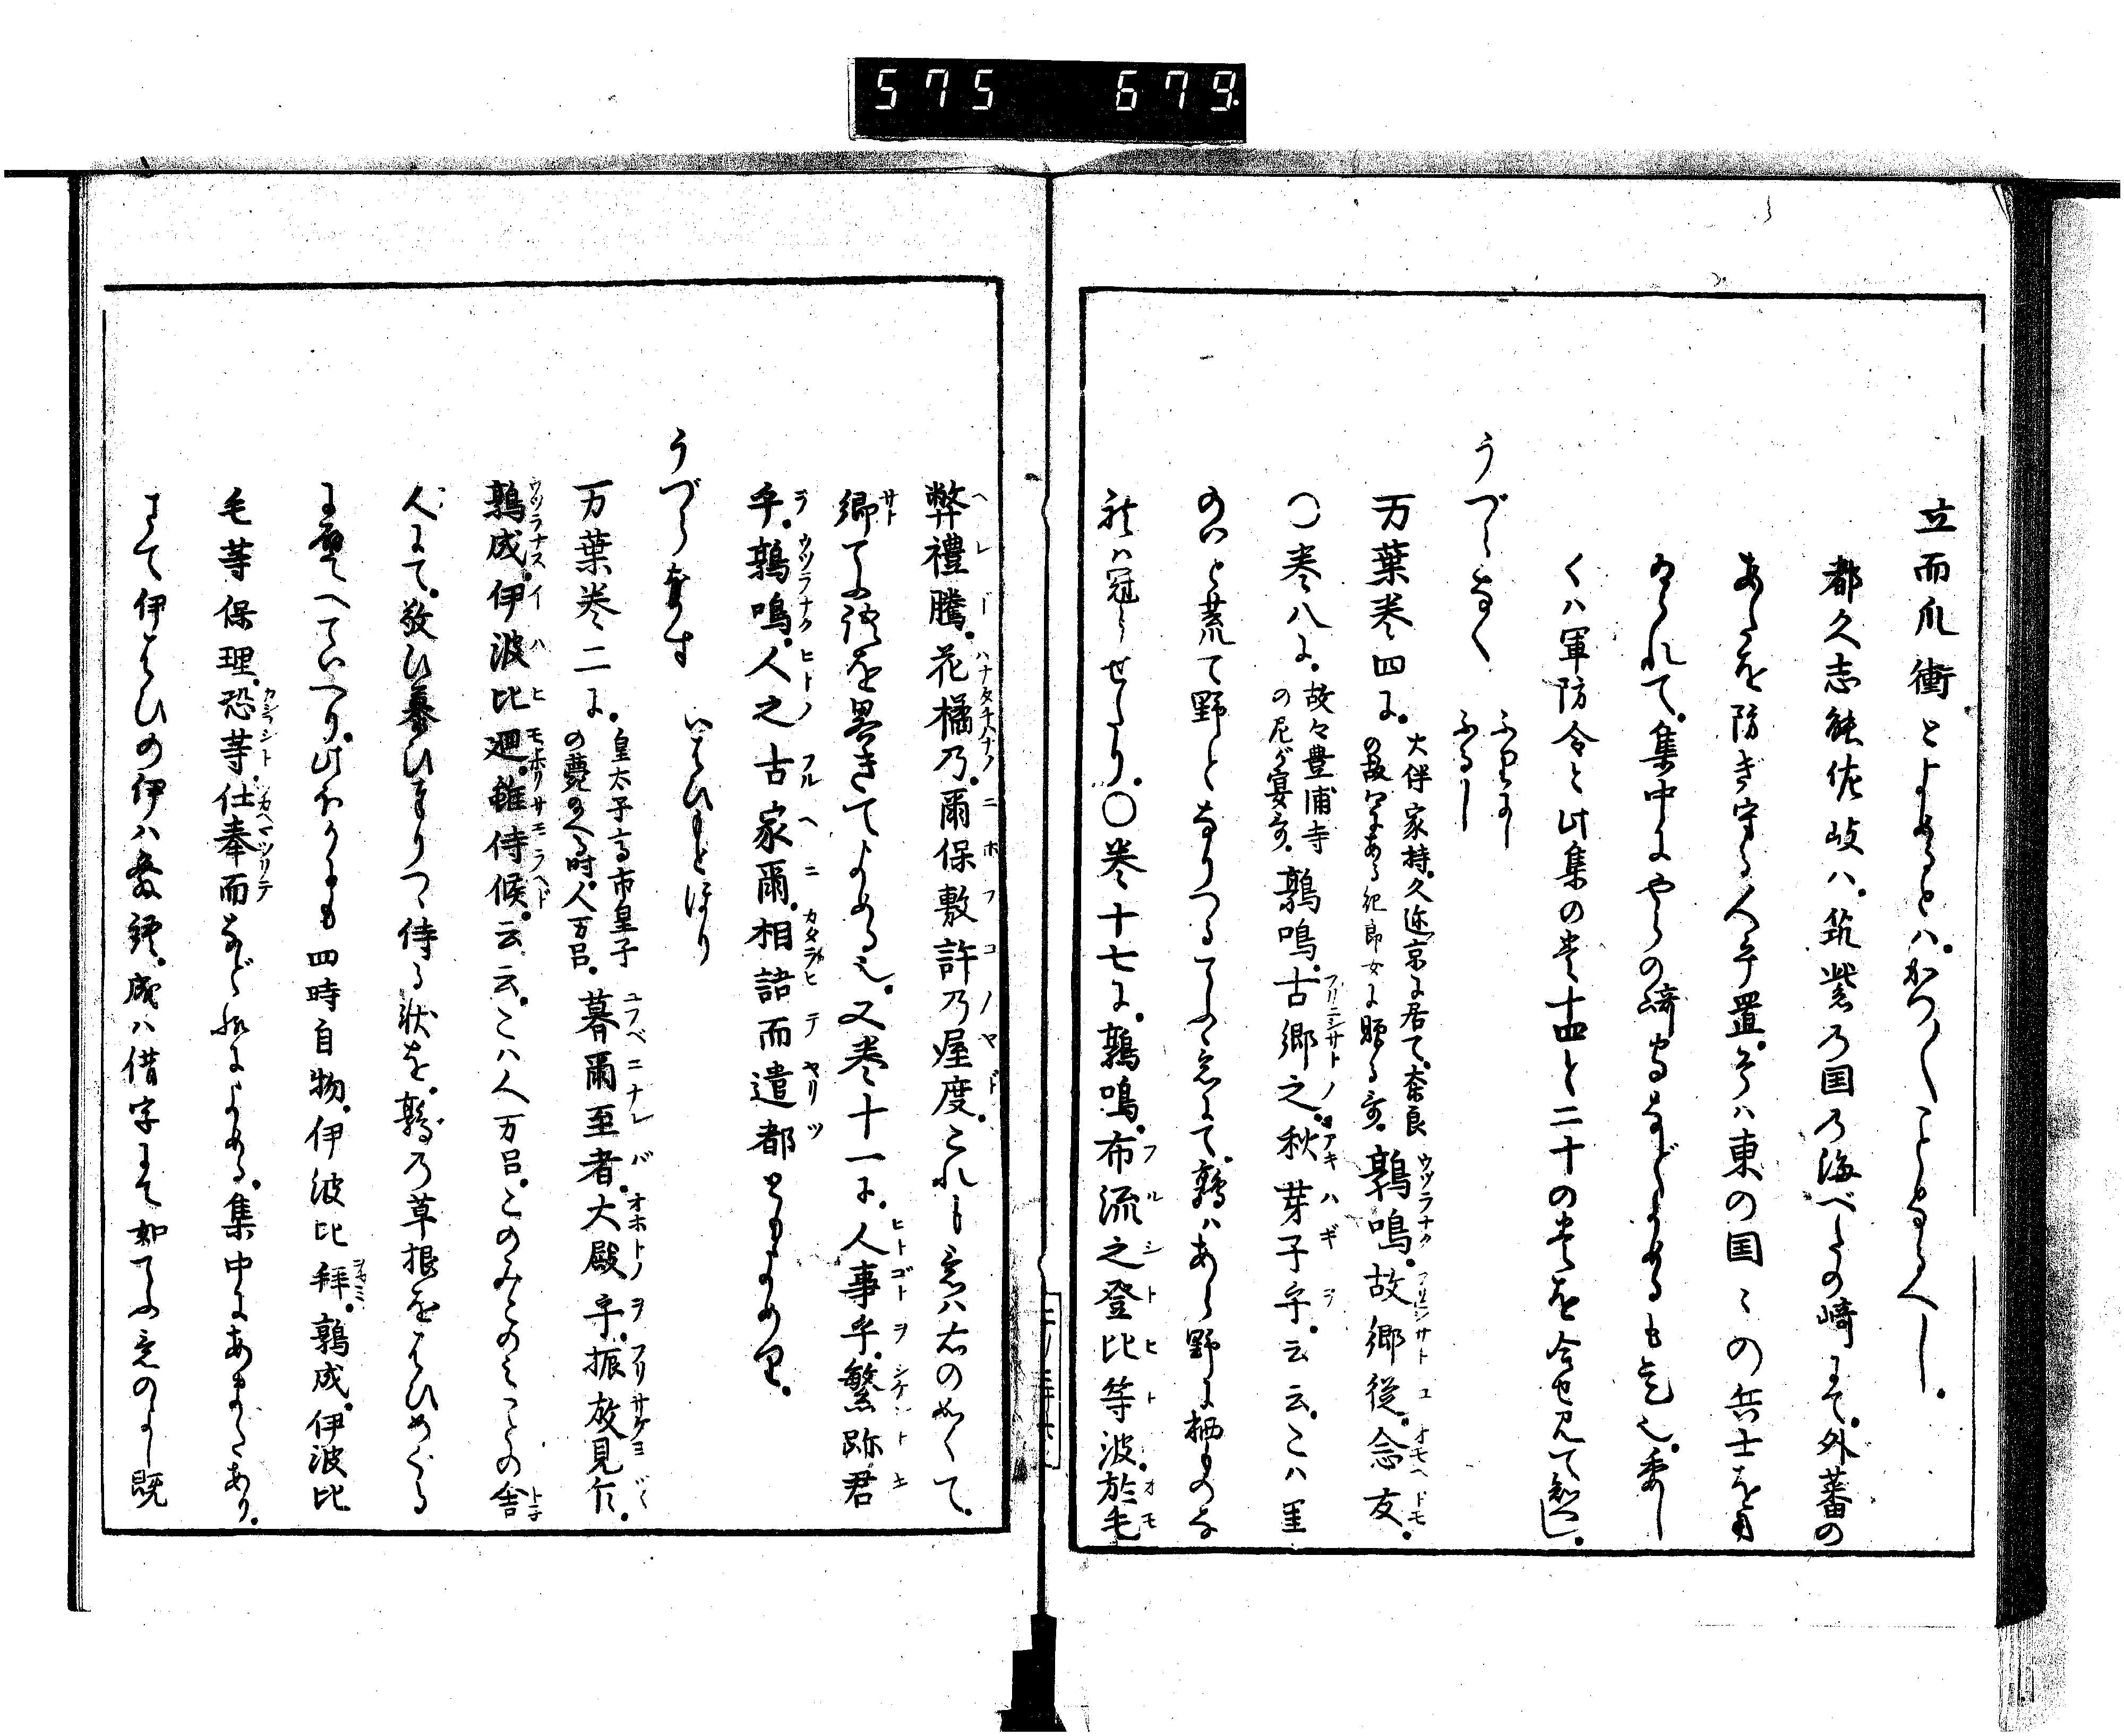 575 679
立而爪衝とよめるとハ。かつ〱ことなるへし。
都久志能佐岐ハ。筑紫乃国乃海べたの﨑にて。外蕃の
あたを防ぎ守る人乎置。そハ東の国〻の兵士を用
ゐられて。集中にやらの﨑守などよめるも是也。委し
くハ軍防令と此集の巻十四と二十の巻とを合せ見て知へし。
うづらなく ふりにし ふるし
万葉巻四に。大伴家持。久迩京に居て。奈良の故郷にある紀郎女に贈る哥。鶉鳴。故郷従。念友。
〇巻八に。故々豊浦寺の尼が宴哥。鶉鳴。古郷之。秋芽子乎。云云。こハ里
のいと荒て野となりつるてふ意にて。鶉ハあら野に栖ものな
れハ冠らせたり。〇巻十七に。鶉鳴。布流之登比等波。於毛
弊禮騰。花橘乃。爾保敷許乃屋度。これも意ハ右の如くて。
郷てふ語を畧きてよめる也。又巻十一に。人事乎。繁跡君
乎。鶉鳴。人之古家爾。相語而遣都ともよめり。
うづらなす いはひもとほり
万葉巻二に。皇太子高市皇子の薨まへる時。人万呂。暮爾至者。大殿乎。振放見乍。
鶉成。伊波比廻。雖侍候。云云。こハ人万呂。このみこのみことの舎
人にて。敬ひ慕ひまりつゝ侍る状を。鶉の草根をはひめぐる
に譬へていへり。此ほかにも四時自物。伊波比拜。鶉成。伊波比
毛等保理。恐等。仕奉而などれによめる。集中にあまたあり。
さて伊はひの伊ハ發語。成ハ借字にて如てふ意のよし既